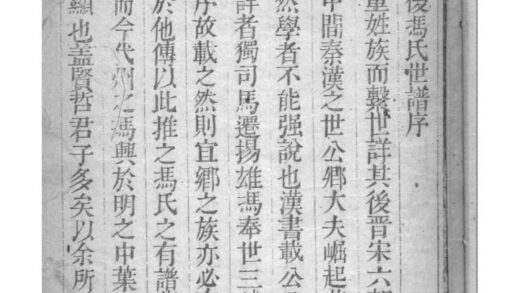 後馮氏世譜序
重姓族而繫世詳其後晉宋六朝
中間秦漢之世公鄉大夫崛起
然學者不能强說也漢書載公
詳者獨司馬遷揚雄馮奉世三
序故載之然則宜鄉之族亦必
於他傳以此推之馮氏之有譜
而今代州之馮興於明之中葉
顯也盖賢哲君子多矣以余所